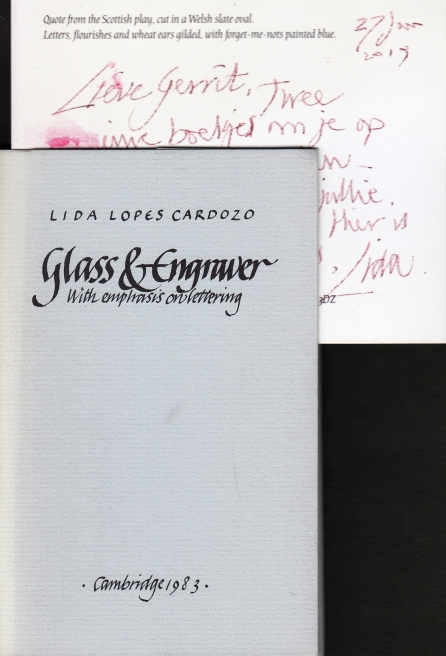 Quote from the Scottish play, cut in a Welsh slate oval.
Letters, flourishes and wheat ears gilded, with forget-me-nots painted blue.
27 Jan
2019
Lieve Gerrit, Twee
boekjes om je op
jullie.
Hier is
, Lida.
3DZ
LIDA LOPES CARDOZO
Glass & Engraver
With emphasis on lettering
· Cambridge 1983 ·